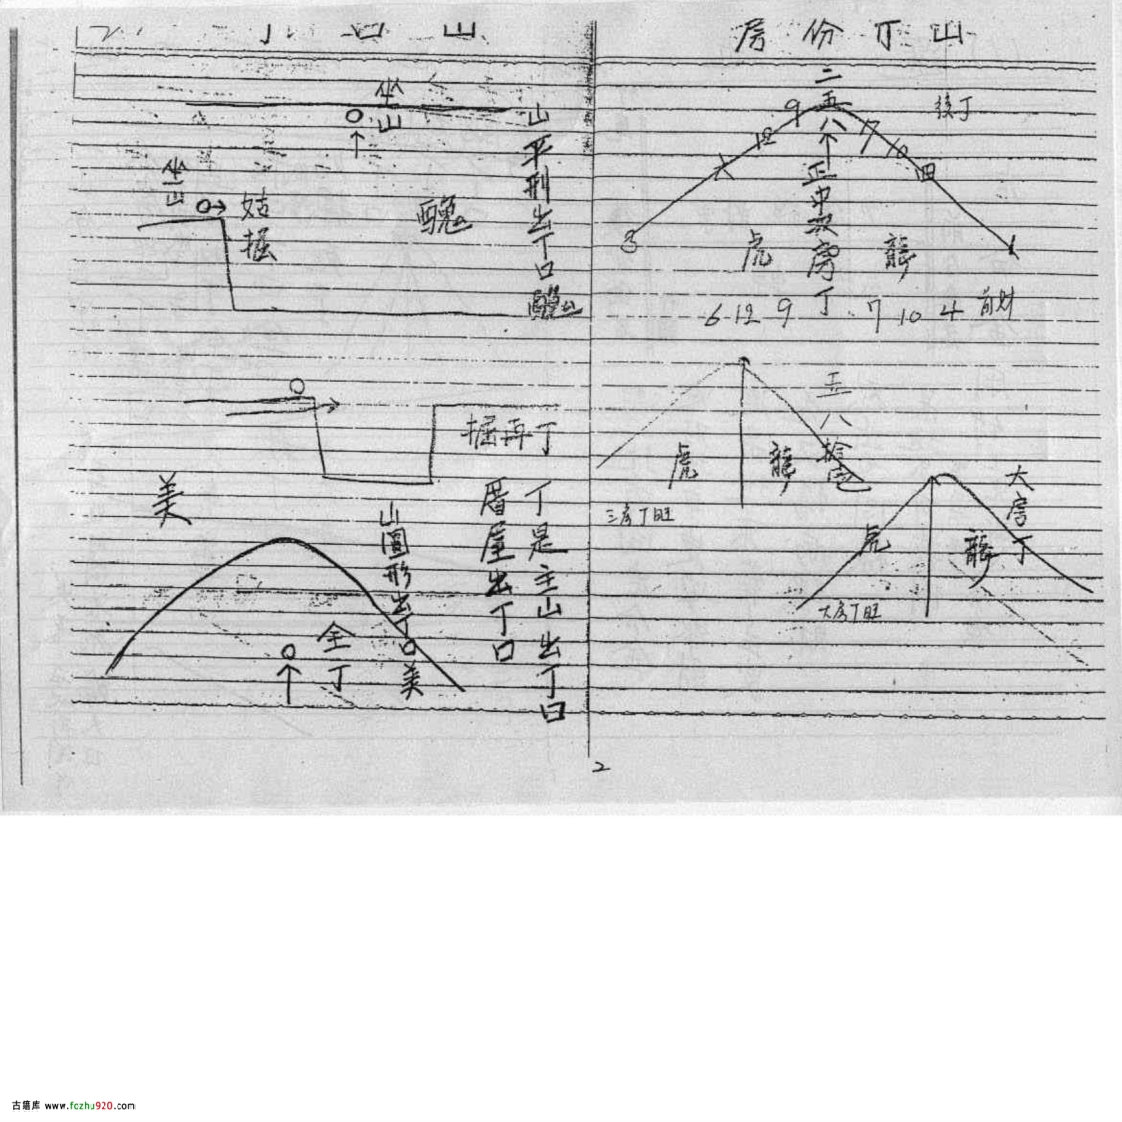 山丁份房
後丁
二
五
八
9
12
六
7
10
四
3
1
正中取房丁
龍
虎
6 12 9
7 10 4
前財
五八
虎
龍
三房丁旺
大房丁
虎
龍
大房丁旺
山口丁
坐山
山平刑出丁口醜
坐山
姑掘
醜
掘再丁
丁是主山出丁口
厝屋出丁口
美
山圓形出丁口美
全丁
2
古籍库 www.fczhu920.com